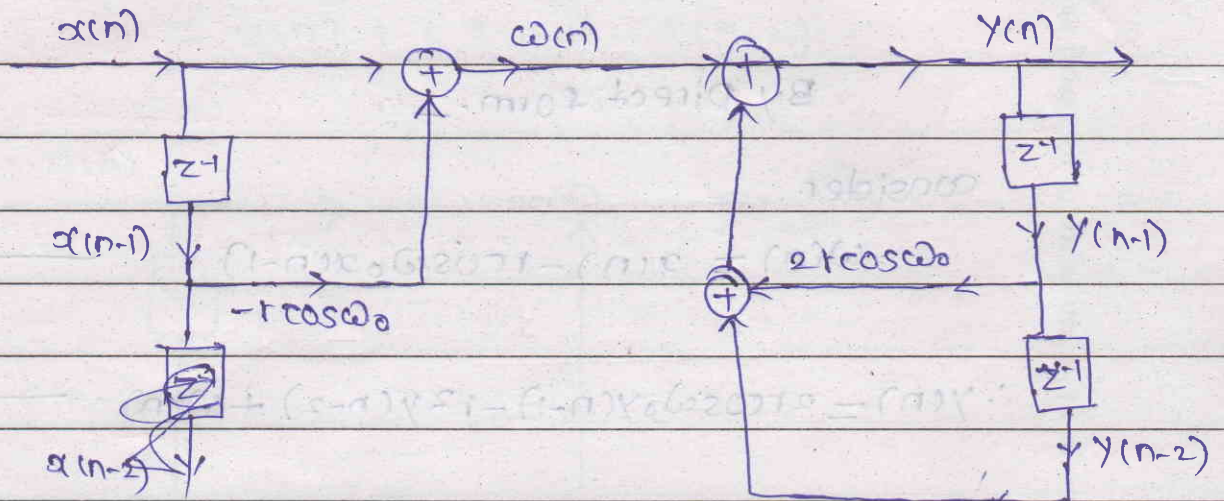 x(n) ω(n) y(n)
+ +
z⁻¹ z⁻¹
x(n-1) y(n-1)
2rcosω₀
+
-rcosω₀
z⁻¹ z⁻¹
x(n-2) y(n-2)